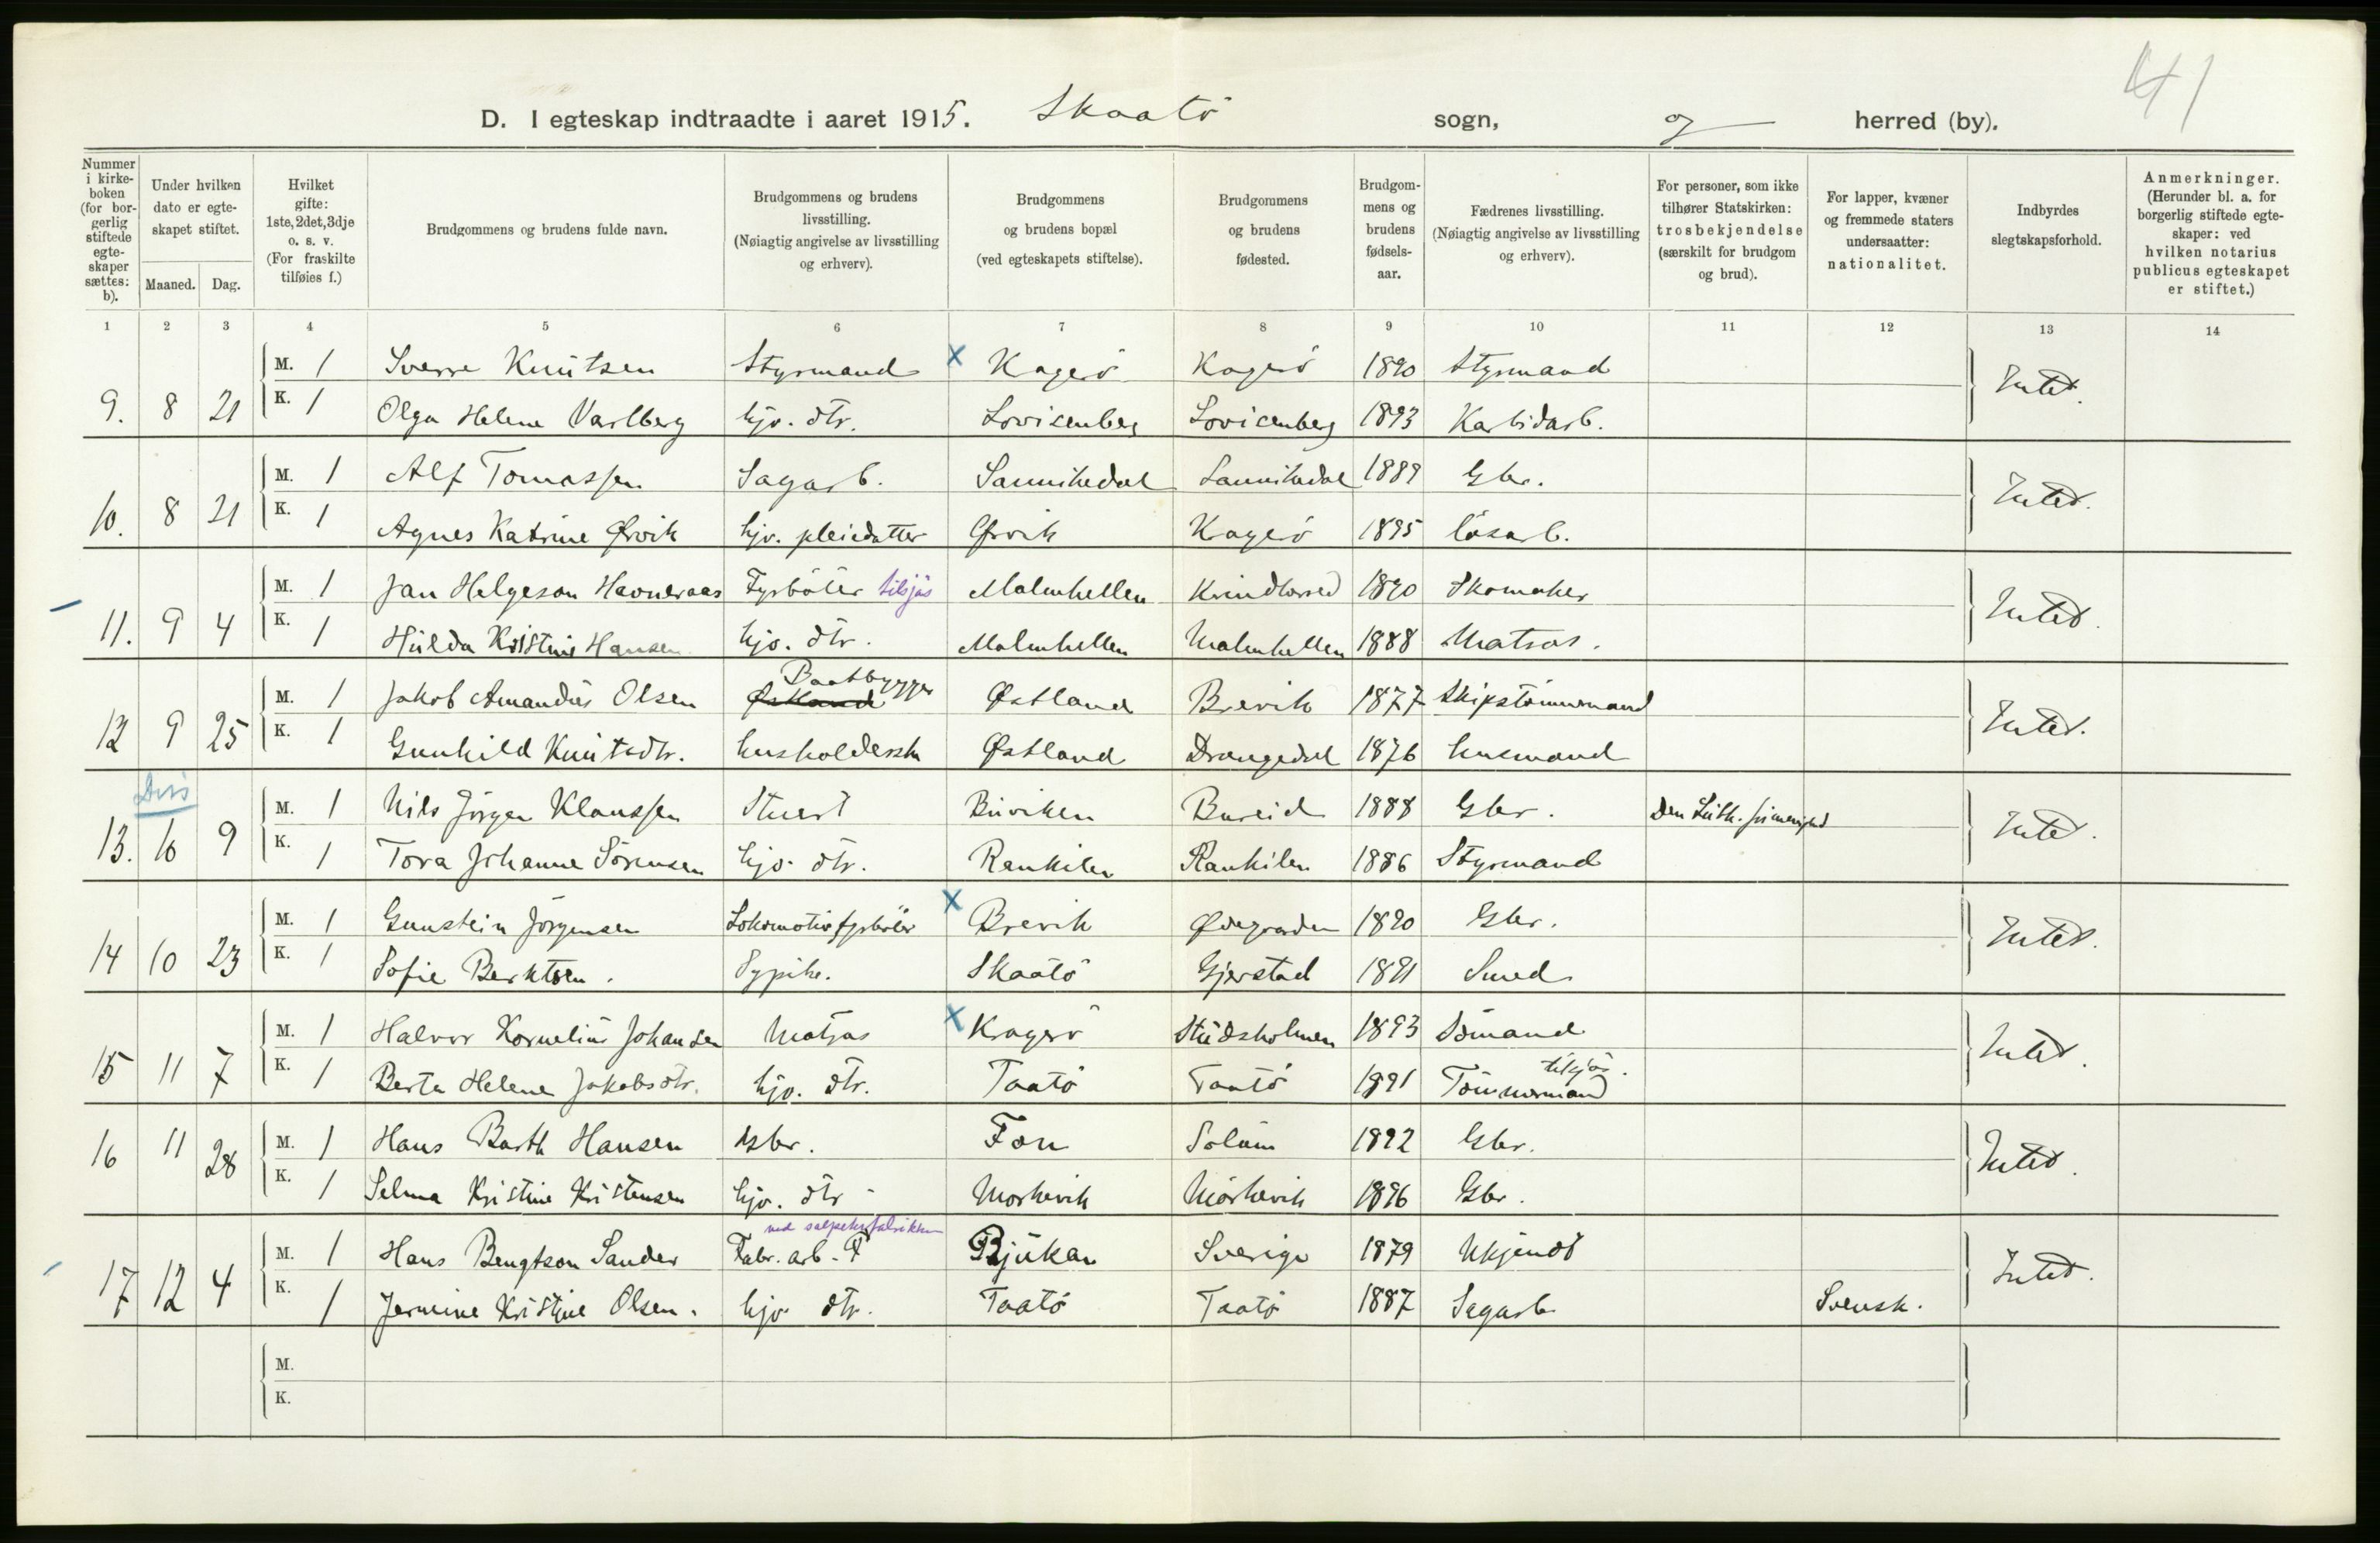 41
D. I egteskap indtraadte i aaret 1915. Skaatö sogn, og herred (by).
Nummer i kirkeboken (for borgerlig stiftede egteskaper sættes: b).
Under hvilken dato er egteskapet stiftet.
Maaned. Dag.
Hvilket gifte: 1ste, 2det, 3dje o. s. v. (For fraskilte tilføies f.)
Brudgommens og brudens fulde navn.
Brudgommens og brudens livsstilling. (Nøiagtig angivelse av livsstilling og erhverv).
Brudgommens og brudens bopæl (ved egteskapets stiftelse).
Brudgommens og brudens fødested.
Brudgommens og brudens fødselsaar.
Fædrenes livsstilling. (Nøiagtig angivelse av livsstilling og erhverv).
For personer, som ikke tilhører Statskirken: trosbekjendelse (særskilt for brudgom og brud).
For lapper, kvæner og fremmede staters undersaatter: nationalitet.
Indbyrdes slegtskapsforhold.
Anmerkninger. (Herunder bl. a. for borgerlig stiftede egteskaper: ved hvilken notarius publicus egteskapet er stiftet.)
1 2 3 4 5 6 7 8 9 10 11 12 13 14
M. 1 Sverre Knutsen Styrmand x Kragerö Kragerö 1890 Styrmand
9. 8 21 K. 1 Olga Helene Varlberg hjv. dtr. Lovisenberg Lovisenberg 1893 Karbidarb. Intet.
M. 1 Alf Tomassen Sagarb. Sannikedal Sannikedal 1889 Gbr.
10. 8 21 K. 1 Agnes Katrine Ørvik hjv. pleiedatter Ørvik Kragerö 1895 lösarb. Intet.
M. 1 Jan Helgeson Havneraas Fyrböter tilsjös Malmhellen Kvindherred 1890 Skomaker
11. 9 4 K. 1 Hulda Kristine Hansen hjv. dtr. Malmhellen Malmhellen 1888 Matros. Intet.
M. 1 Jakob Amandus Olsen Baatbygger Østland Brevik 1877 Skipstömmermand
12 9 25 K. 1 Gunhild Knutsdtr. husholderske Østland Drangedal 1876 husmand Intet.
Diss
M. 1 Nils Jörgen Klaussen Stuert Buviken Bureid 1888 Gbr. Den Luth. frimenighed
13. 10 9 K. 1 Tora Johanne Sörensen hjv. dtr. Rankilen Rankilen 1886 Styrmand Intet.
M. 1 Gunstein Jörgensen Lokomotivfyrböter x Brevik Ødegaarden 1890 Gbr.
14 10 23 K. 1 Sofie Berntsen. Sypike. Skaatö Gjerstad 1891 Smed Intet.
M. 1 Halvor Kornelius Johansen Matros x Kragerö Studsholmen 1893 Sömand
15 11 7 K. 1 Berta Helene Jakobsdtr. hjv. dtr. Taatö Taatö 1891 Tömmermand tilsjös. Intet.
M. 1 Hans Barth Hansen Gbr. Fon Solum 1892 Gbr.
16 11 28 K. 1 Selma Kristine Kristensen hjv. dtr. Mörkevik Mörkevik 1896 Gbr. Intet.
M. 1 Hans Bengtson Sander Fabr. arb. ved salpeterfabrikken Rjukan Sverige 1879 Ukjendt
17 12 4 K. 1 Jermine Kristine Olsen. hjv. dtr. Taatö Taatö 1887 Sagarb. Svensk. Intet.
M.
K.